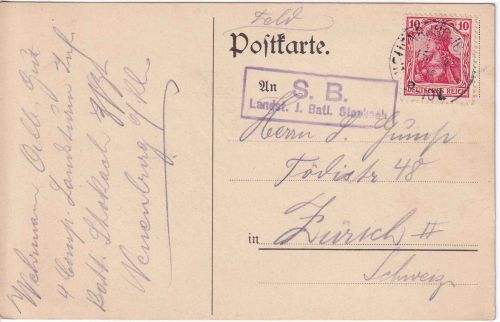 Feld
Postkarte.
10 10
DEUTSCHES REICH
An
S. B.
Landst. J. Batl. Stockach
Herrn J. Gump
Tödistr 48
in Zürich II
Schweiz
Wehrmann
4 Comp. Landsturm Inf.
Batl. Stockach
Neuenburg a/Rh